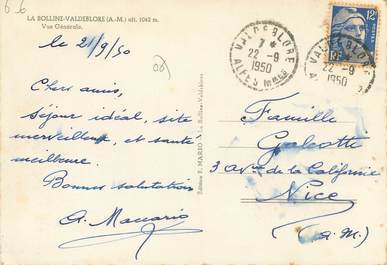 6 6
LA BOLLINE-VALDEBLORE (A.-M.) alt. 1042 m.
Vue Générale.
le 21/9/50
06
Chers amis,
Séjour idéal, site
merveilleux, et santé
meilleure.
Bonnes salutations
A. Macario
Editions F. MARIO La Bolline-Valdeblore
VALDEBLORE
7 *
22 - 9
1950
ALPES MMES
VALDEBLORE
22 - 9
1950
12F
Famille
Galeotti
3 Ave de la Californie
Nice
(A.M.)